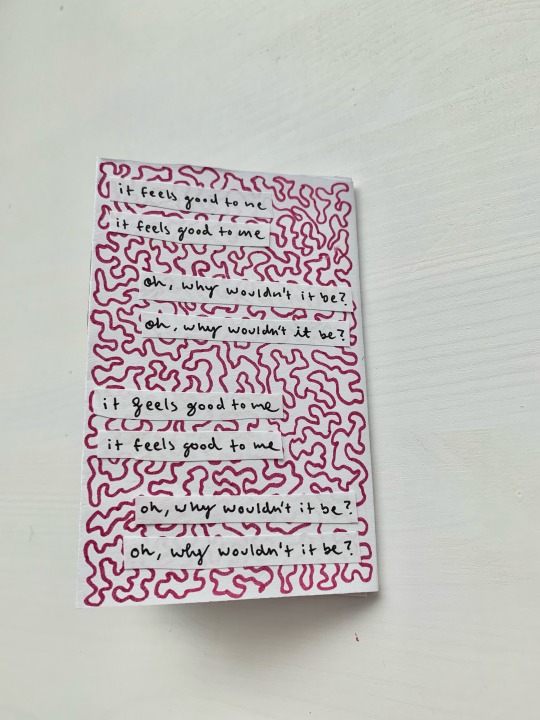 it feels good to me
it feels good to me
oh, why wouldn't it be?
oh, why wouldn't it be?
it feels good to me
it feels good to me
oh, why wouldn't it be?
oh, why wouldn't it be?